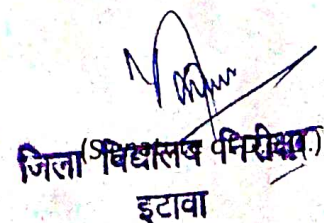 जिला विद्यालय निरीक्षक
इटावा